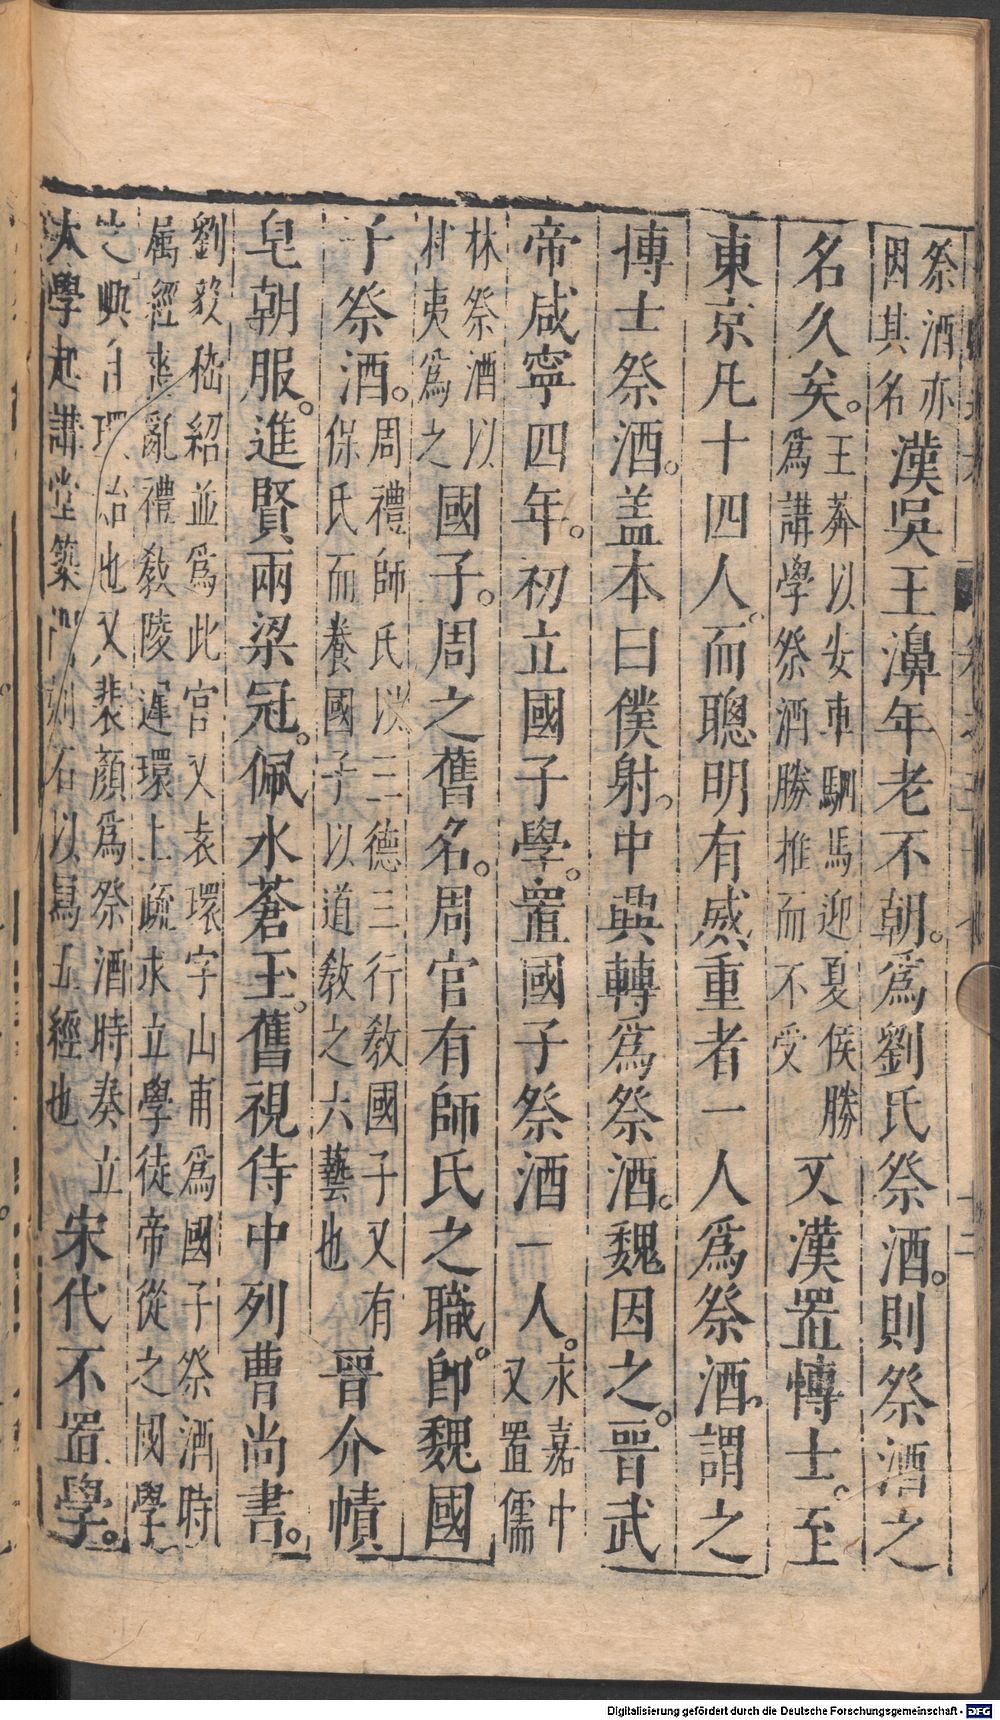 祭酒亦
因其名
漢吳王濞年老不朝。爲劉氏祭酒。則祭酒之
名久矣。
王莽以安車駟馬迎夏侯勝
爲講學祭酒勝推而不受
又漢置博士。至
東京凡十四人。而聰明有威重者一人爲祭酒。謂之
博士祭酒。盖本曰僕射。中興轉爲祭酒。魏因之。晉武
帝咸寧四年。初立國子學。置國子祭酒一人。
永嘉中
又置儒
林祭酒以
杜夷爲之
國子。周之舊名。周官有師氏之職。卽魏國
子祭酒。
周禮師氏以三德三行教國子又有
保氏而養國子以道教之六藝也
晉介幘
皂朝服。進賢兩梁冠。佩水蒼玉。舊視侍中列曹尚書。
劉毅嵇紹並爲此官又袁環字山甫爲國子祭酒時
屬經喪亂禮教陵遲環上疏求立學徒帝從之國學
之興自環始也又裴頠爲祭酒時奏立
太學起講堂築門刻石以寫五經也
宋代不置學。
Digitalisierung gefördert durch die Deutsche Forschungsgemeinschaft - DFG